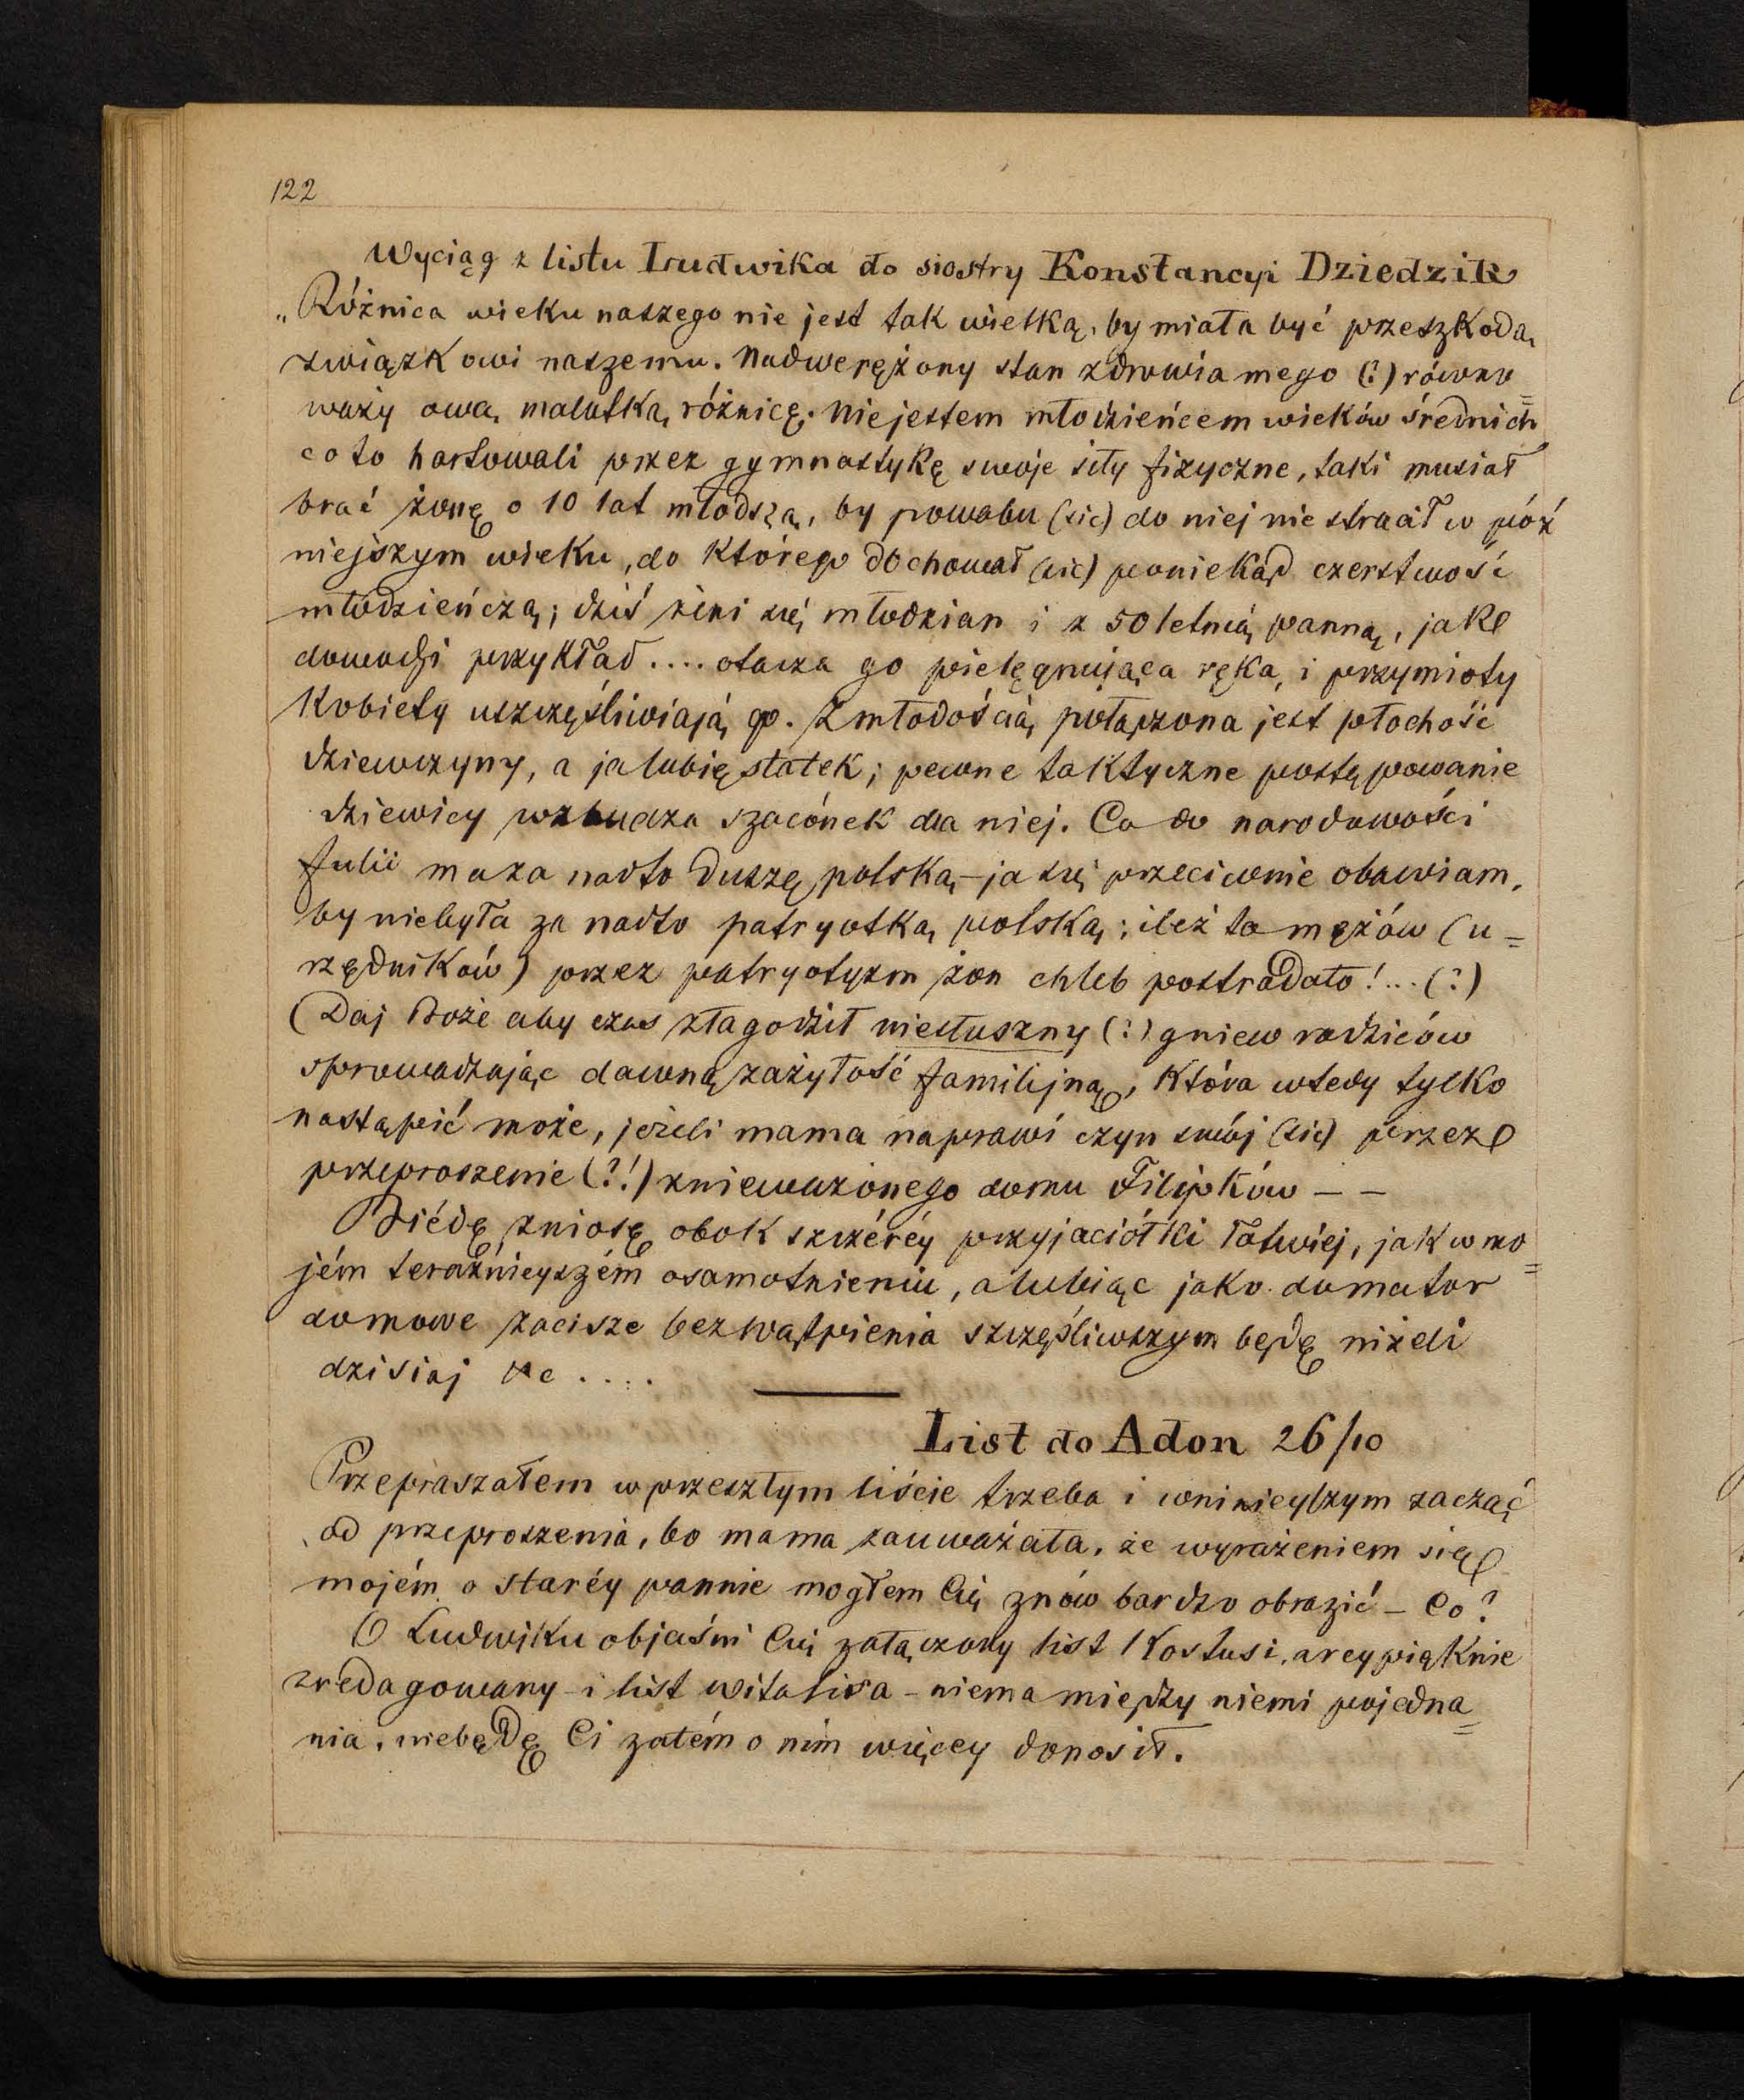 122
Wyciąg z listu Ludwika do siostry Konstancyi Dziedzik
„Różnica wieku naszego nie jest tak wielką, by miała być przeszkodą
związkowi naszemu. Nadwerężony stan zdrowia mego (?) równo=
waży ową malutką różnicę. Nie jestem młodzieńcem wieków średnich
co to hartowali przez gymnastykę swoje siły fizyczne, taki musiał
brać żonę o 10 lat młodszą, by powabu (sic) do niej nie stracił w póź
niejszym wieku, do którego dochował (sic) poniekąd czerstwość
młodzieńczą; dziś żeni się młodzian i z 50 letnią panną, jak
dowodzi przykład.... otacza go pielęgnująca ręka, i przymioty
kobiety uszczęśliwiają go. Z młodością połączona jest płochość
dziewczyny, a ja lubię statek; pewne taktyczne postępowanie
dziewicy wzbudza szacónek dla niej. Co do narodowości
Julii ma za nadto duszę polską – ja się przeciwnie obawiam,
by niebyła za nadto patryotką polską; ileż to mężów (u=
rzędników) przez patryotyzm żon chleb postradało!... (?)
(Daj Boże aby czas złagodził niesłuszny (?) gniew rodziców
sprowadzając dawną zażyłość familijną, która wtedy tylko
nastąpić może, jeżeli mama naprawi czyn swój (sic) przez
przeproszenie (?!) znieważonego domu Filipków – –
Biédę zniosę obok szczéréy przyjaciółki łatwiej, jak w mo=
jém teraźnieyszém osamotnieniu, a lubiąc jako domator
domowe zacisze bezwątpienia szczęśliwszym będę niżeli
dzisiaj &c ....
List do Adon 26/10
Przepraszałem w przeszłym liście trzeba i wninieyszym zacząć
od przeproszenia, bo mama zauważała, że wyrażeniem się
mojém o staréy pannie mogłem Cię znów bardzo obrazić – Co?
O Ludwiku objaśni Cię załączony list Kostusi, arcypięknie
zredagowany – i list Witalisa – niema między niemi pojedna=
nia, niebędę Ci zatém o nim więcey donosił.